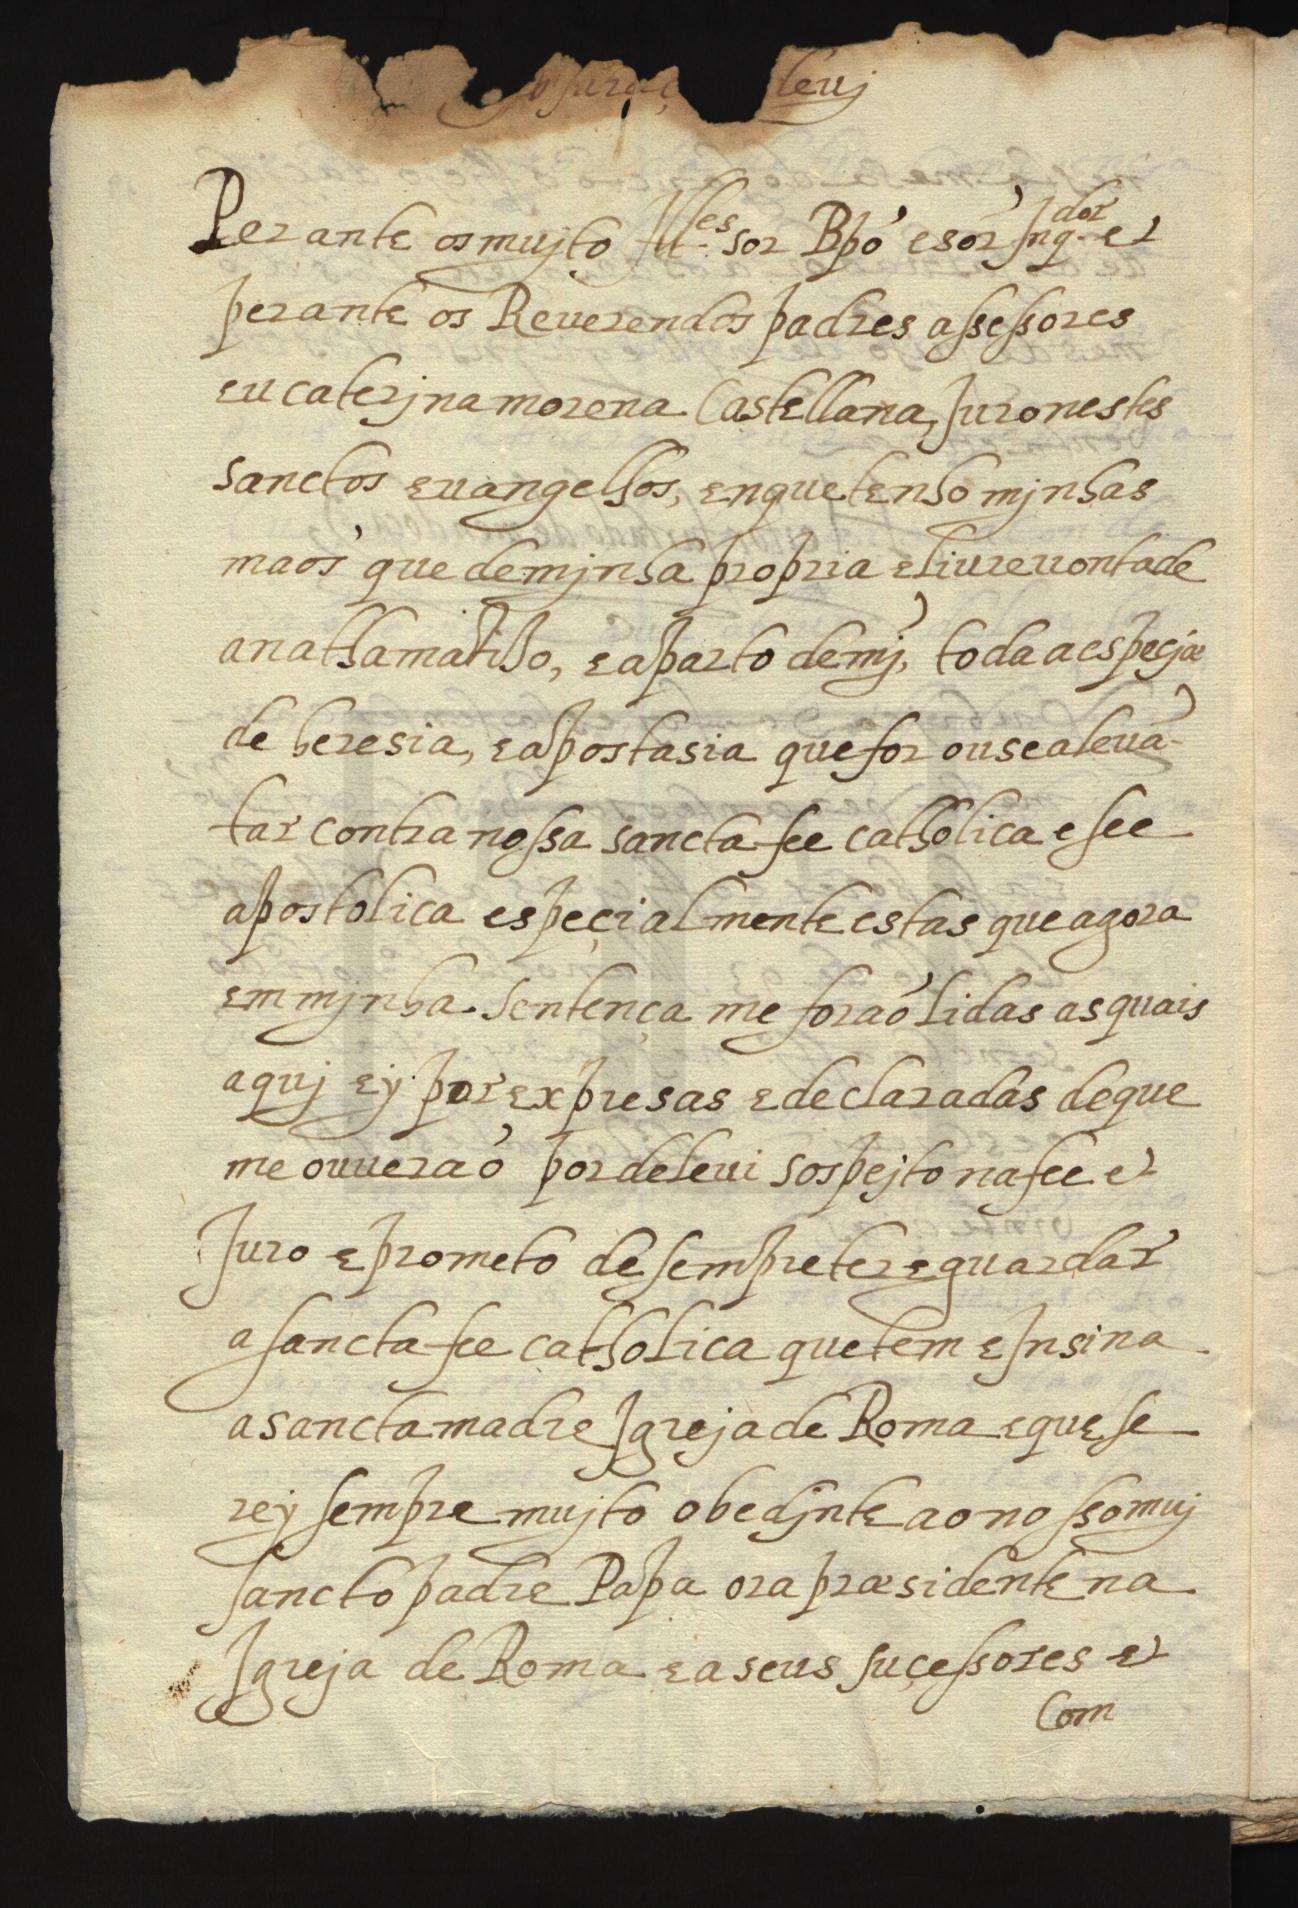 leuj
Perante os mujto Illes sor Bpó e sór Inqdor et
perante os Reuerendos padres assessores
eu caterjna morena Castellana, Juro nestes
sanctos euangelhos, en que tenho mjnhas
maos que de mjnha propria e liure uontade
anathamatiso, e aparto de mj, toda a espeçia
de heresia, e apostasia que for ou se aleuã-
tar contra nossa sancta fee catholica e see
apostolica espeçialmente estas que agora
em mjnha Sentença me foraõ lidas as quais
aquj ey por expresas e declaradas de que
me ouueraõ por de leui sospejto na fee et
Juro e prometo de sempre ter e guardar
a sancta fee catholica que tem e Insina
a sancta madre Igreja de Roma e que se
rey sempre mujto obedjnte ao nosso muj
sancto padre Papa ora præsidente na
Igreja de Roma e a seus suçessores et
Com